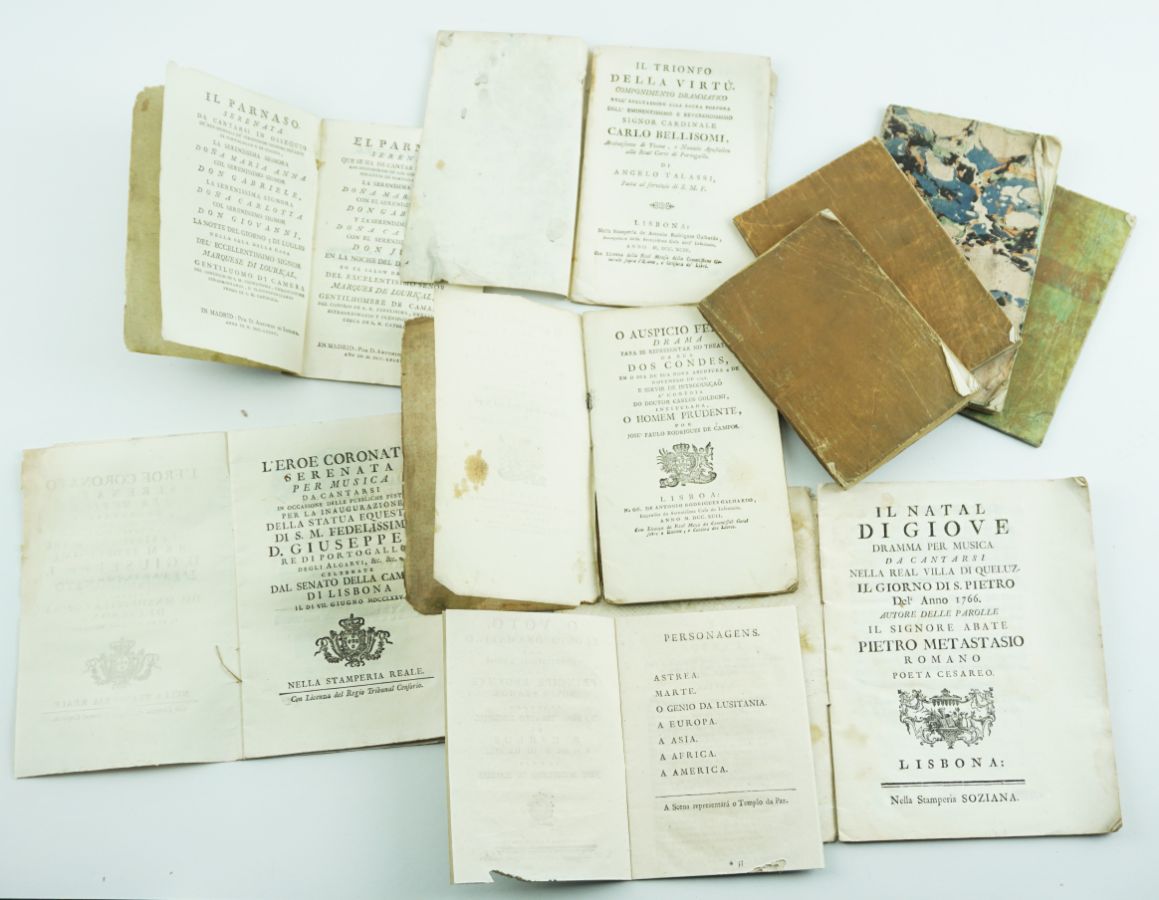 IL PARNASO.
SERENATA
DA CANTARSI IN OSSEQUIO
LA SERENISSIMA SIGNORA
DOÑA MARIA ANNA
COL SERENISSIMO SIGNOR
DON GABRIELE,
LA SERENISSIMA SIGNORA
DOÑA CARLOTTA
COL SERENISSIMO SIGNOR
DON GIOVANNI,
LA NOTTE DEL GIORNO DI LUGLIO
NELLA SALA DELLA CASA
DEL' ECCELLENTISSIMO SIGNOR
MARQUESE DI LOURIÇAL,
GENTILUOMO DI CAMERA
IN MADRID: POR D. ANTONIO DE SANCHA.
EL PARN
SEREN
QUE SE HA DE CANTAR
LA SERENISSIMA
DOÑA MAR
CON EL SERENIS
DON GAB
Y LA SERENISSI
DOÑA CA
CON EL SERENIS
DON JU
EN LA NOCHE DEL DIA
EN EL SALON DE LA
DEL EXCELENTISIMO SEÑOR
MARQUES DE LOURIÇAL,
GENTILHOMBRE DE CAMA
EN MADRID: POR D. ANTONIO
IL TRIONFO
DELLA VIRTÙ.
COMPONIMENTO DRAMMATICO
NELL' ESALTAZIONE ALLA SACRA PORPORA
DELL' EMINENTISSIMO E REVERENDISSIMO
SIGNOR CARDINALE
CARLO BELLISOMI,
Arcivescovo di Tiana, e Nunzio Apostolico
alla Real Corte di Portogallo.
DI
ANGELO TALASSI,
Poeta al servizio di S. M. F.
LISBONA;
Nella Stamperia de Antonio Rodrigues Galhardo,
O AUSPICIO FE
DRAMA
PARA SE REPRESENTAR NO THEAT
DA RUA
DOS CONDES,
EM O DIA DE SUA NOVA ABERTURA 4 DE
NOVEMBRO DE
E SERVIR DE INTRODUCÇAÕ
A' COMEDIA
DO DOCTOR CARLOS GOLDONI,
INTITULADA,
O HOMEM PRUDENTE,
POR
JOSE' PAULO RODRIGUES DE CAMPOS.
LISBOA:
NA OF. DE ANTONIO RODRIGUES GALHARDO,
Impressor da Serenissima Casa do Infantado.
ANNO M. DCC. XCII.
Com Licença da Real Meza da Commissaõ Geral
sobre o Exame, e Censura dos Livros.
L'EROE CORONATO
SERENATA
PER MUSICA
DA CANTARSI
IN OCCASIONE DELLE PUBBLICHE FEST
PER LA INAUGURAZIONE
DELLA STATUA EQUEST
DI S. M. FEDELISSIM
D. GIUSEPPE
RE DI PORTOGALLO
DEGLI ALGARVI, &c. &c.
CELEBRATE
DAL SENATO DELLA CAM
DI LISBONA
IL DI VII. GIUGNO MDCCLXXV.
NELLA STAMPERIA REALE.
Con Licenza del Regio Tribunal Censorio.
PERSONAGENS.
ASTREA.
MARTE.
O GENIO DA LUSITANIA.
A EUROPA.
A ASIA.
A AFRICA.
A AMERICA.
A Scena representará o Templo da Paz.
IL NATAL
DI GIOVE
DRAMMA PER MUSICA
DA CANTARSI
NELLA REAL VILLA DI QUELUZ.
IL GIORNO DI S. PIETRO
Del' Anno 1766.
AUTORE DELLE PAROLLE
IL SIGNORE ABATE
PIETRO METASTASIO
ROMANO
POETA CESAREO.
LISBONA:
Nella Stamperia SOZIANA.